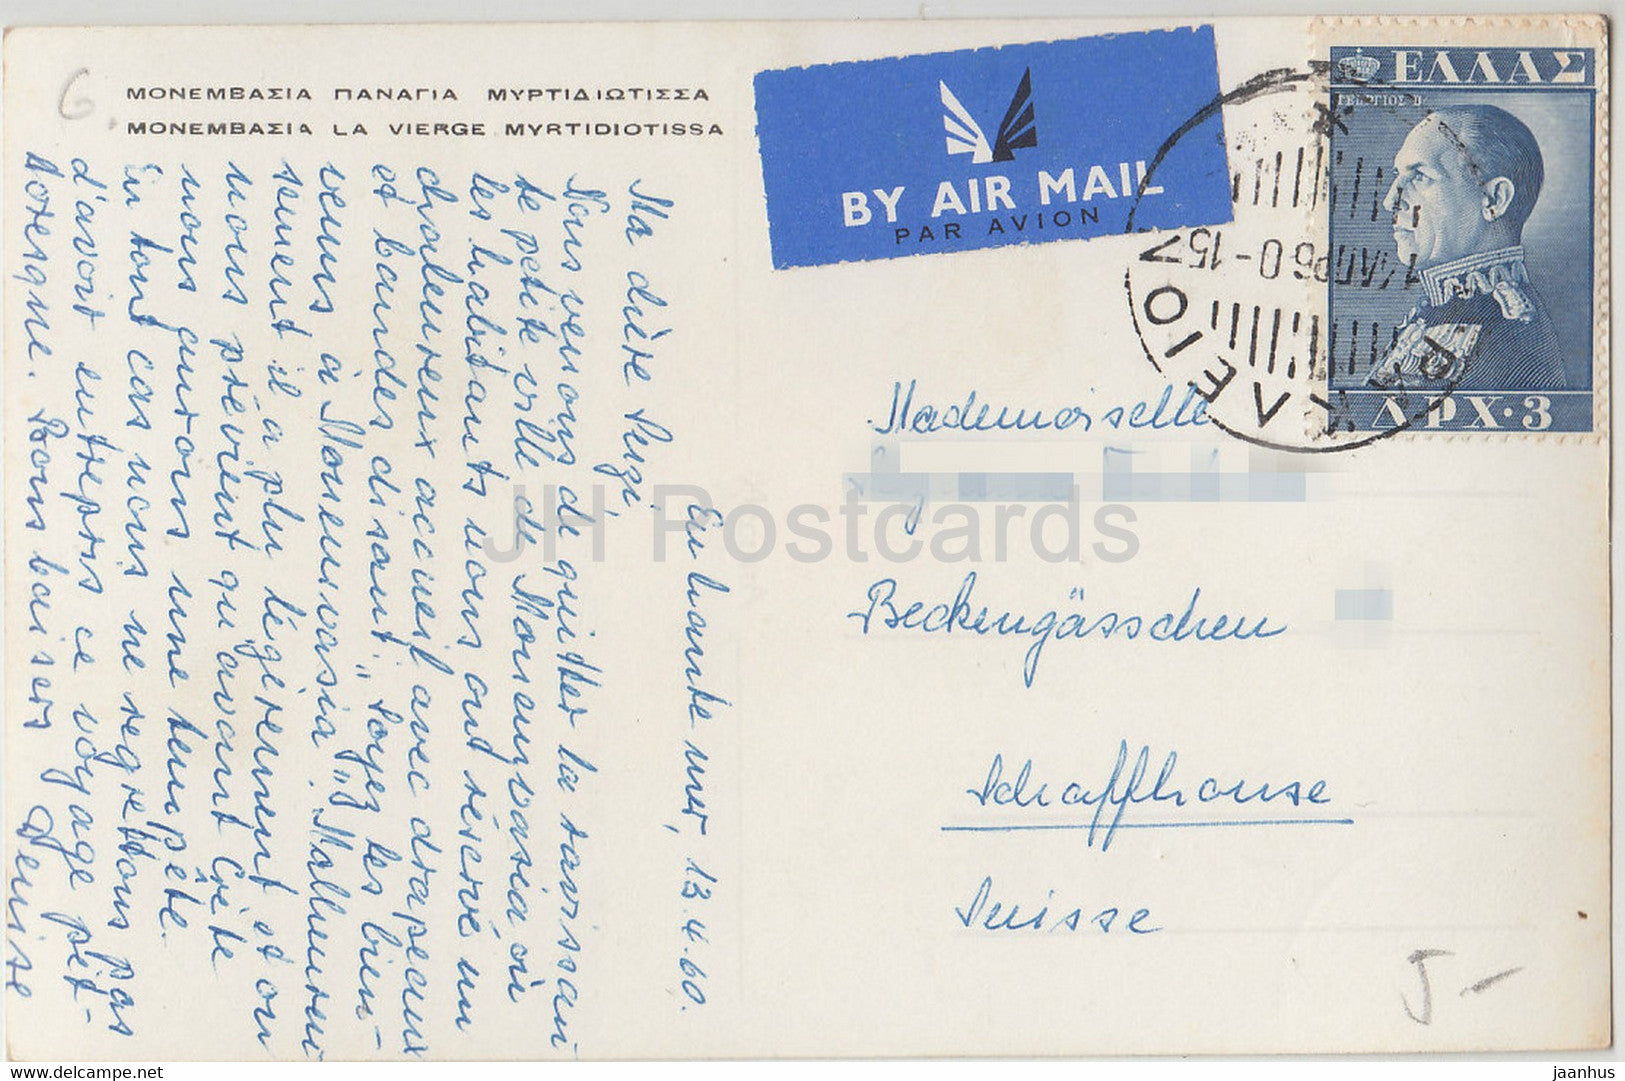 ΜΟΝΕΜΒΑΣΙΑ ΠΑΝΑΓΙΑ ΜΥΡΤΙΔΙΩΤΙΣΣΑ
MONEMBAΣIA LA VIERGE MYRTIDIOTISSA
BY AIR MAIL
PAR AVION
ΕΛΛΑΣ
ΓΕΩΡΓΙΟΣ Β
ΔΡΧ·3
ΗΡΑΚΛΕΙΟΝ
ΑΠΡ60-15
En haute mer, 13.4.60.
Ma chère Sugi,
Nous venons de quitter la ravissan
te petite ville de Monemvasia où
les habitants nous ont réservé un
chaleureux acceuil avec drapeaux
et bandes disant: „Soyez les bien-
venus à Monemvasia". Malheureu
sement il a plu légèrement et on
nous prévient qu'avant Crète
nous aurons une tempête.
En tout cas nous ne regrettons pas
d'avoir entrepris ce voyage pit-
toresque. Bons baisers Denise
Mademoiselle
Beckengässchen
Schaffhouse
Suisse
JH Postcards
6
5-
jaanhus
www.delcampe.net